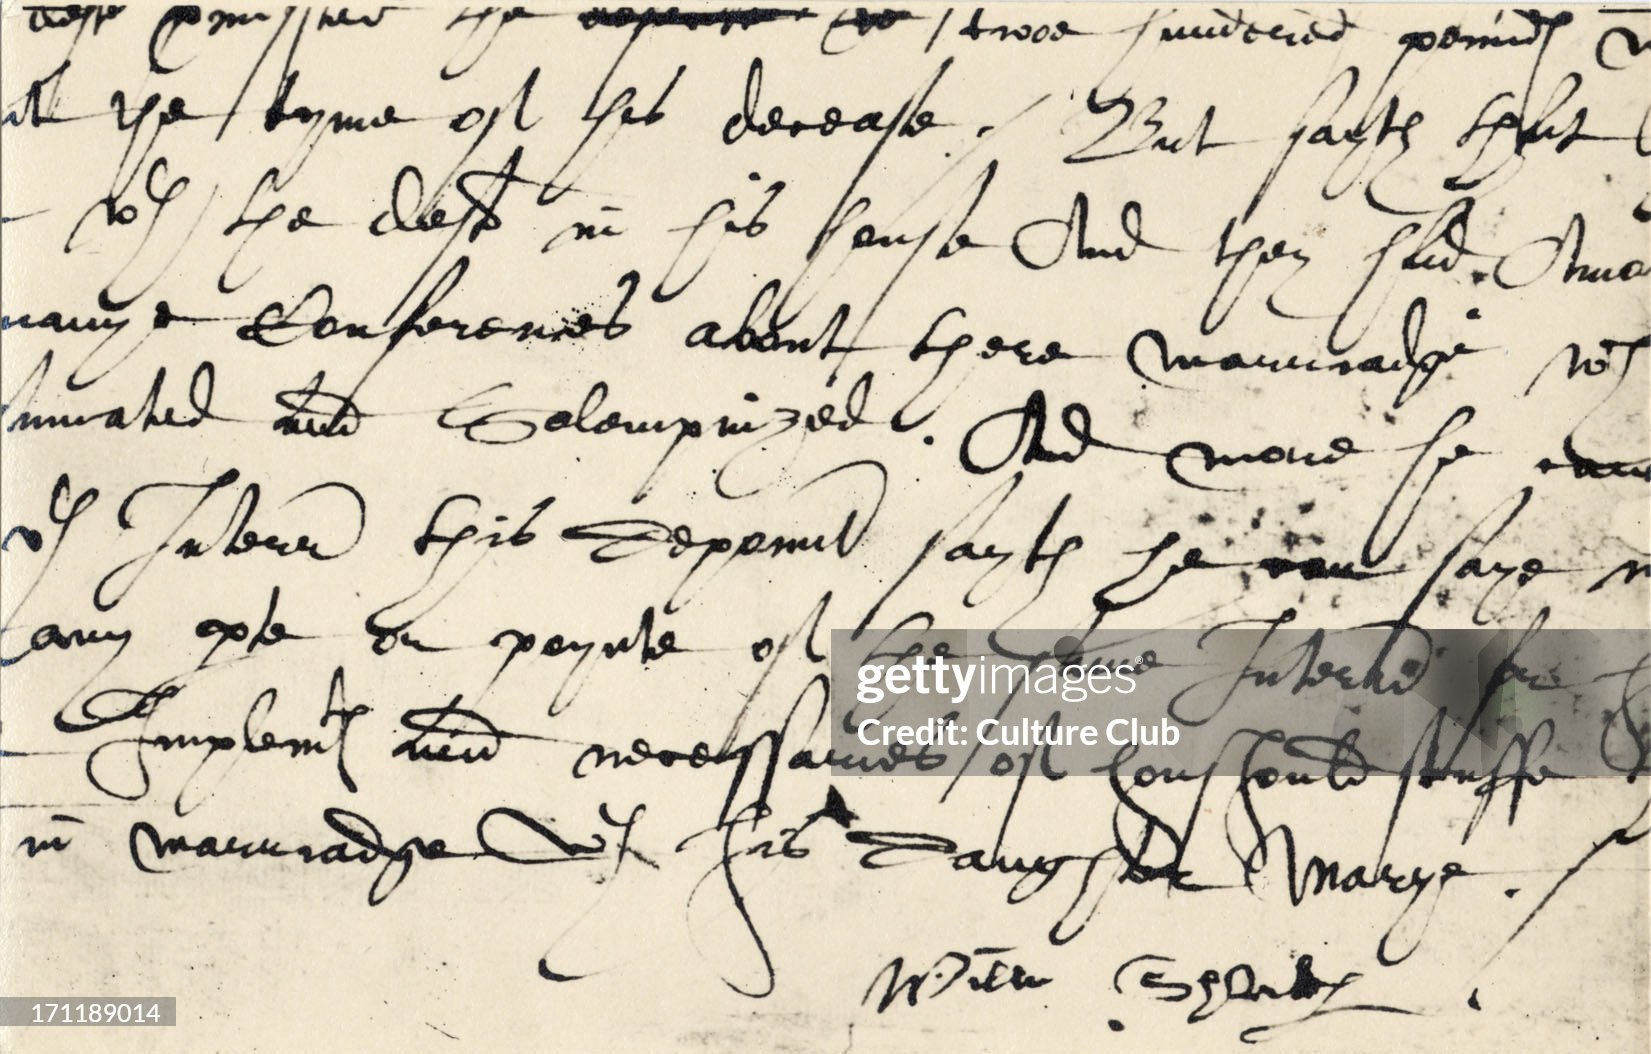 deft promissed the two hundered pound
at the tyme of his decease. / But sayth that
wth the deft in his house And they had Amo
manye Conferences about there marriadge wch
sumated and Solempnized. And more he can
vth Interr this deponnt sayth he can saye n
any pte or poynte of the same Interre for
Implemts and necessaries of houshould stuffe
in marriadge wth his daughter Marye.
Willm Shakp
gettyimages
Credit: Culture Club
171189014